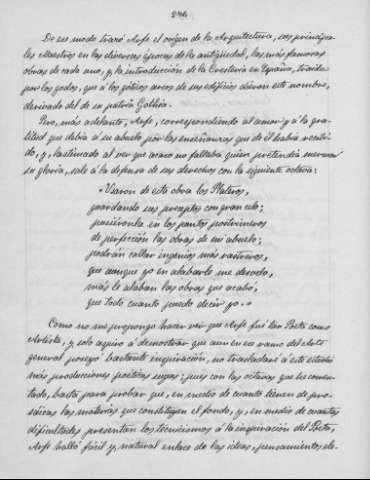 296
De ese modo trazó Arfe el origen de la Arquitectura, sus principa-
les Maestros en las diversas épocas de la antigüedad, las más famosas
obras de cada uno, y la introducción de la Crestería en España, traida
por los godos, que á los góticos arcos de sus edificios dieron este nombre,
derivado del de su patria Gothia.
Pero, más adelante, Arfe, correspondiendo al amor y á la gra-
titud que debía á su abuelo por las enseñanzas que de él había recibi-
do, y, lastimado al ver que acaso no faltaba quien pretendía mermar
su gloria, sale á la defensa de sus derechos con la siguiente octava:
"Usaron de esta obra los Plateros,
guardando sus preceptos con gran celo;
pusiéronla en los puntos postrimeros
de perfección las obras de mi abuelo;
podrán callar ingenios más rastreros,
que aunque yo en alabarle me desvelo,
más le alaban las obras que acabó,
que todo cuanto puedo decir yo."
Como no me propongo hacer ver que Arfe fué tan Poeta como
Artista, y solo aspiro á demostrar que aun en ese ramo del Arte
general poseyó bastante inspiración, no trasladaré á este estudio
más producciones poéticas suyas; pues con las octavas que he comen-
tado, basta para probar que, en medio de cuanto tienen de pro-
sáicas las materias que constituyen el fondo, y, en medio de cuantas
dificultades presentan los tecnicismos á la inspiración del Poeta,
Arfe halló fácil y natural enlace de las ideas, pensamientos de-